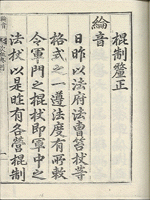 棍制釐正
綸音
日昨以法府法曹笞杖等
格式之一遵法度有所
令軍門之棍杖卽軍中之
法杖以是昨有各營棍制